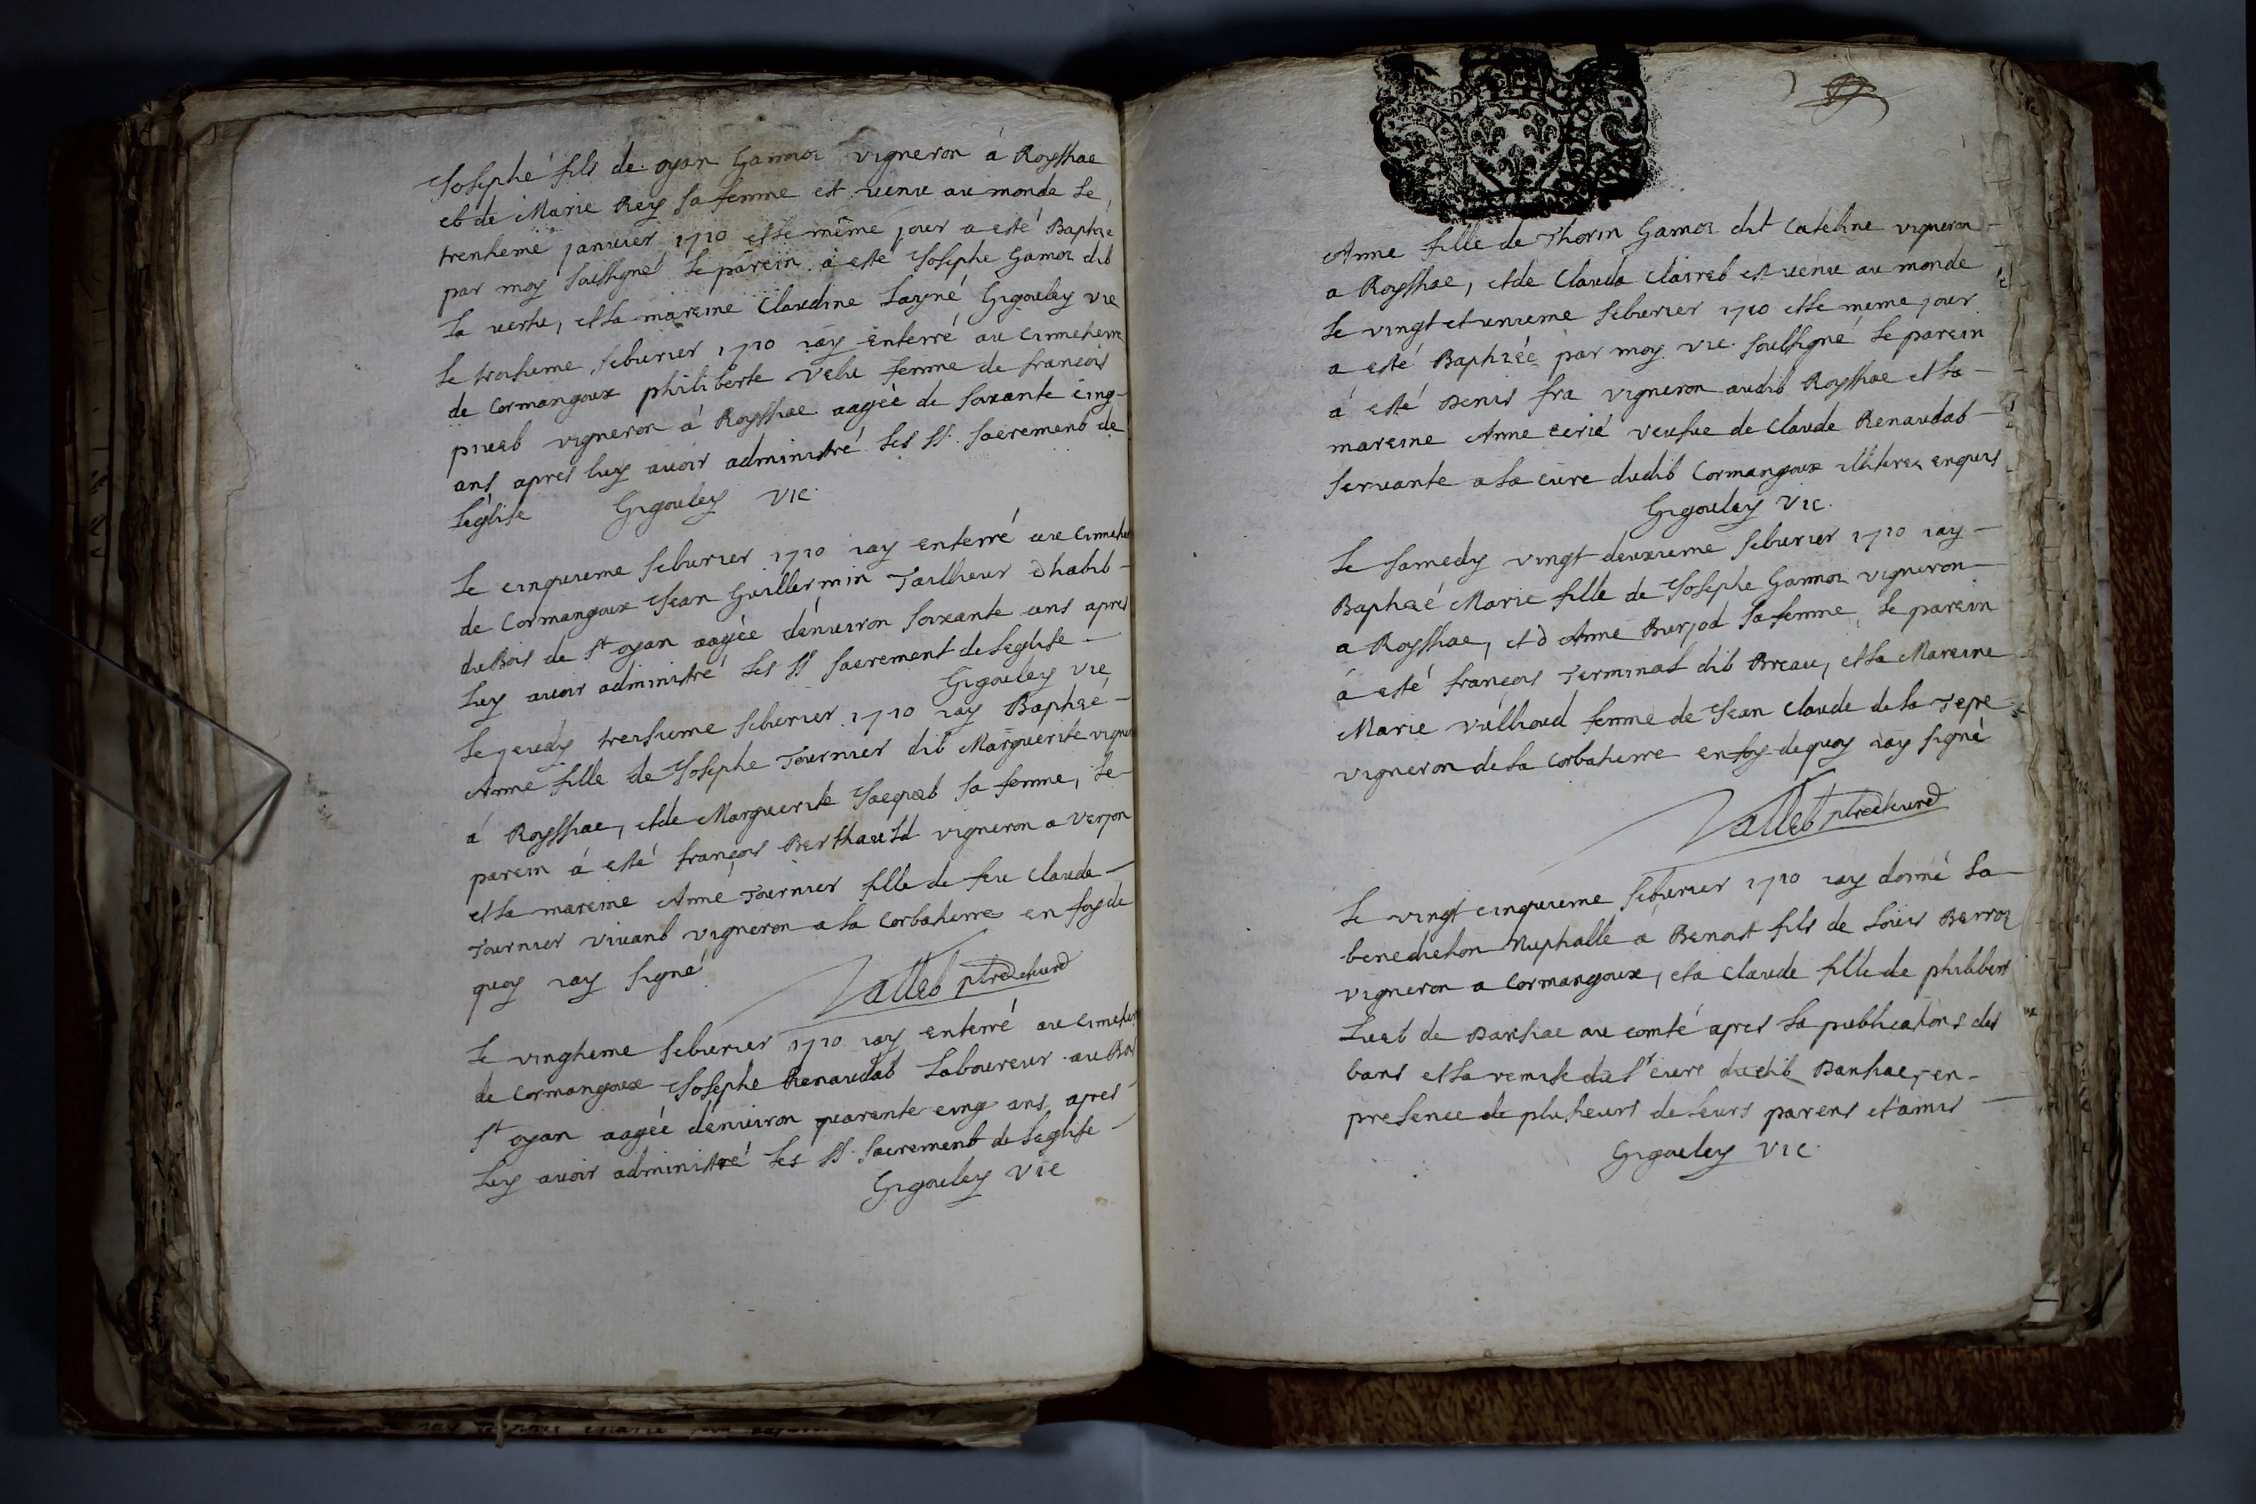 Josephe fils de oyan Gamoz vigneron á Royssiac
et de Marie Rey sa femme est venu au monde le
trentieme janvier 1710 et le même jour a esté Baptizé
par moy soussigné le parein a esté Josephe Gamoz dit
la vertu, et la mareine Claudine Layné Gigouley vic
le troisieme feburier 1710 iay enterré au cimmetierre
de Cormangoux philiberte Velu femme de francois
piuet vigneron á Royssiac aagéé de soixante cinq
ans apres luy avoir administré les SS. sacrement de
L'eglise Gigouley vic.
Le cinquieme feburier 1710 iay enterré au cimmetie
de Cormangoux Jean Guillermin Tailleur d'habit
du Bois de St oyan aagéé d'enuiron soixante ans apres
luy avoir administré les SS sacrement de Leglise
Gigouley vic
Le jeudy treisieme feburier 1710 iay Baptizé
Anne fille de Josephe Tournier dit Marguerite vigner
á Royssiac, et de Marguerite Jacquet sa femme, le
parein á esté françois Berthauld vigneron a verjon
et la mareine Anne Tournier fille de feu Claude
Tournier vivant vigneron a la Corbatiere en foy de
quoy iay signé
Vallet ptre et curé
Le vingtieme feburier 1710 iay enterré au cimetier
de Cormangoux Josephe Renaudat Laboureur au Bois
St oyan aagéé d'enuiron quarente cinq ans, apres
Luy avoir administré les SS. sacrement de Leglise
Gigouley vic
Anne fille de Thorin Gamoz dit Cateline vigneron
a Royssiac, et de Clauda Clairet est venu au monde
le vingt et unieme feburier 1710 et le meme jour
a esté Baptizéé par moy vic. soussigné le parein
á esté Denis fra vigneron audit Royssiac et la
mareine Anne Cerié veufue de Claude Renaudat
servante a la cure dudit Cormangoux illiterez enquis
Gigouley vic.
Le samedy vingt deuxieme feburier 1710 iay
Baptizé Marie fille de Josephe Gamoz vigneron
a Royssiac, et d Anne Burjod sa femme, le parein
á esté françois Terminat dit Breau, et la Mareine
Marie Vuillioud femme de Jean Claude de la Tepe
vigneron de la Corbatiere en foy de quoy iay signé
Vallet ptre et curé
Le vingt cinquieme feburier 1710 iay donné la
benediction Nuptialle á Benoit fils de Loüis Berroz
vigneron a Cormangoux, et a Claude fille de philibert
Luet de Dansiac au comté apres la publications des
bans et la remise du Sr cure dudit Dansiac, en
presence de plusieurs de leurs parens et amis
Gigouley vic.